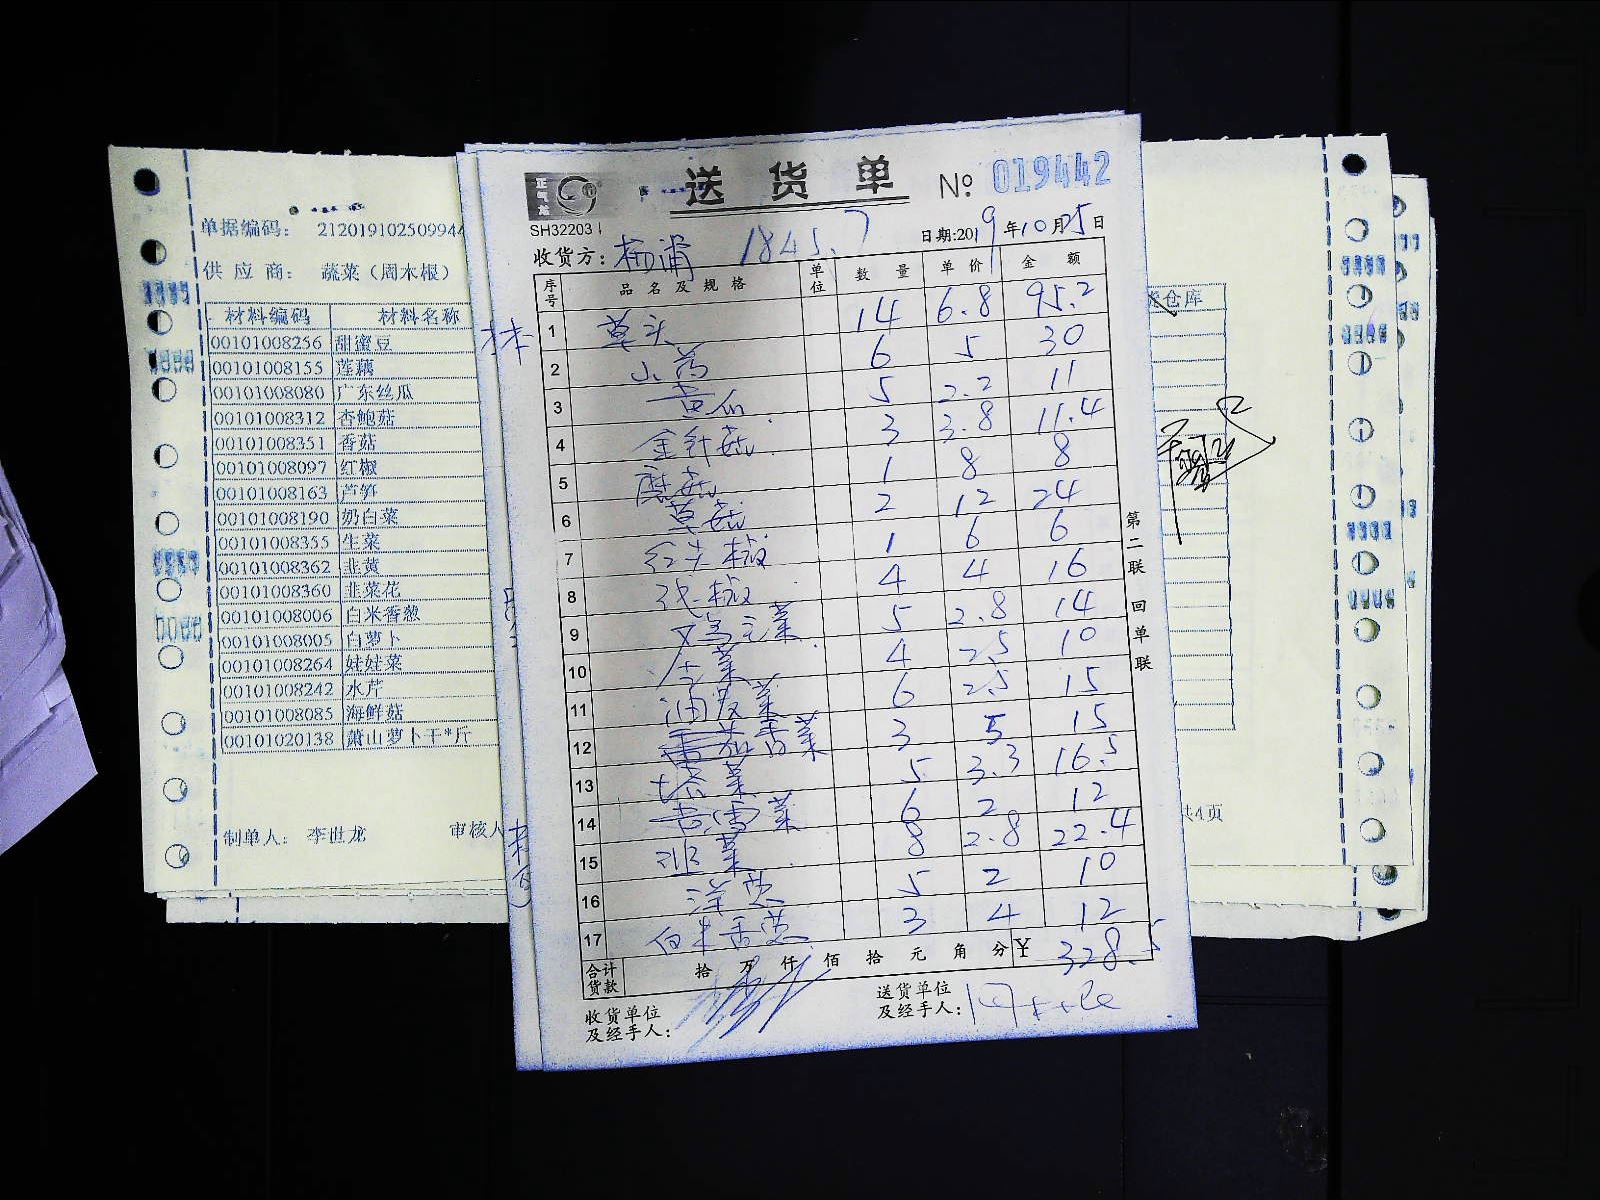 送货单 № 019442
正气龙
SH32203
收货方: 杨浦 1845.7 日期:2019年10月25日
序号 品名及规格 单位 数量 单价 金额
1 草头 14 6.8 95.2
2 小茴 6 5 30
3 黄瓜 5 2.2 11
4 金针菇 3 3.8 11.4
5 蘑菇 1 8 8
6 草菇 2 12 24
7 红尖椒 1 6 6
8 4 4 16
9 5 2.8 14
10 生菜 4 2.5 10
11 油麦菜 6 2.5 15
12 香菜 3 5 15
13 塔菜 5 3.3 16.5
14 6 2 12
15 8 2.8 22.4
16 洋葱 5 2 10
17 白米香葱 3 4 12
合计货款 拾 万 仟 佰 拾 元 角 分 ¥ 328.5
收货单位及经手人:
送货单位及经手人:
第二联 回单联
单据编码: 21201910250994
供应商: 蔬菜(周木根)
材料编码 材料名称
00101008256 甜蜜豆
00101008155 莲藕
00101008080 广东丝瓜
00101008312 杏鲍菇
00101008351 香菇
00101008097 红椒
00101008163 芦笋
00101008190 奶白菜
00101008355 生菜
00101008362 韭黄
00101008360 韭菜花
00101008006 白米香葱
00101008005 白萝卜
00101008264 娃娃菜
00101008242 水芹
00101008085 海鲜菇
00101020138 萧山萝卜干*斤
制单人: 李世龙 审核人
仓库
共4页